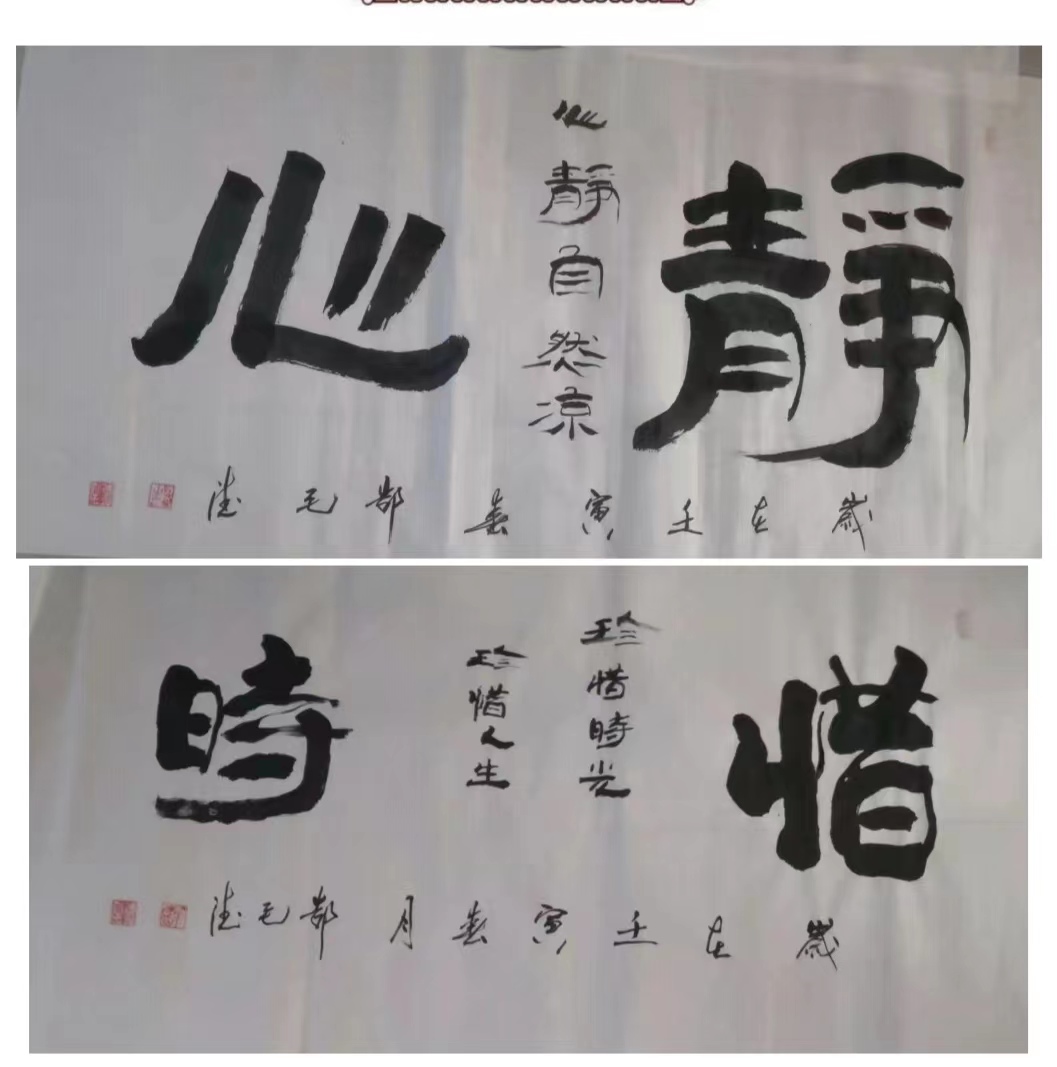 靜心
心靜自然凉
歲在壬寅春鄒毛德
惜時
珍惜時光
珍惜人生
歲在壬寅春月鄒毛德